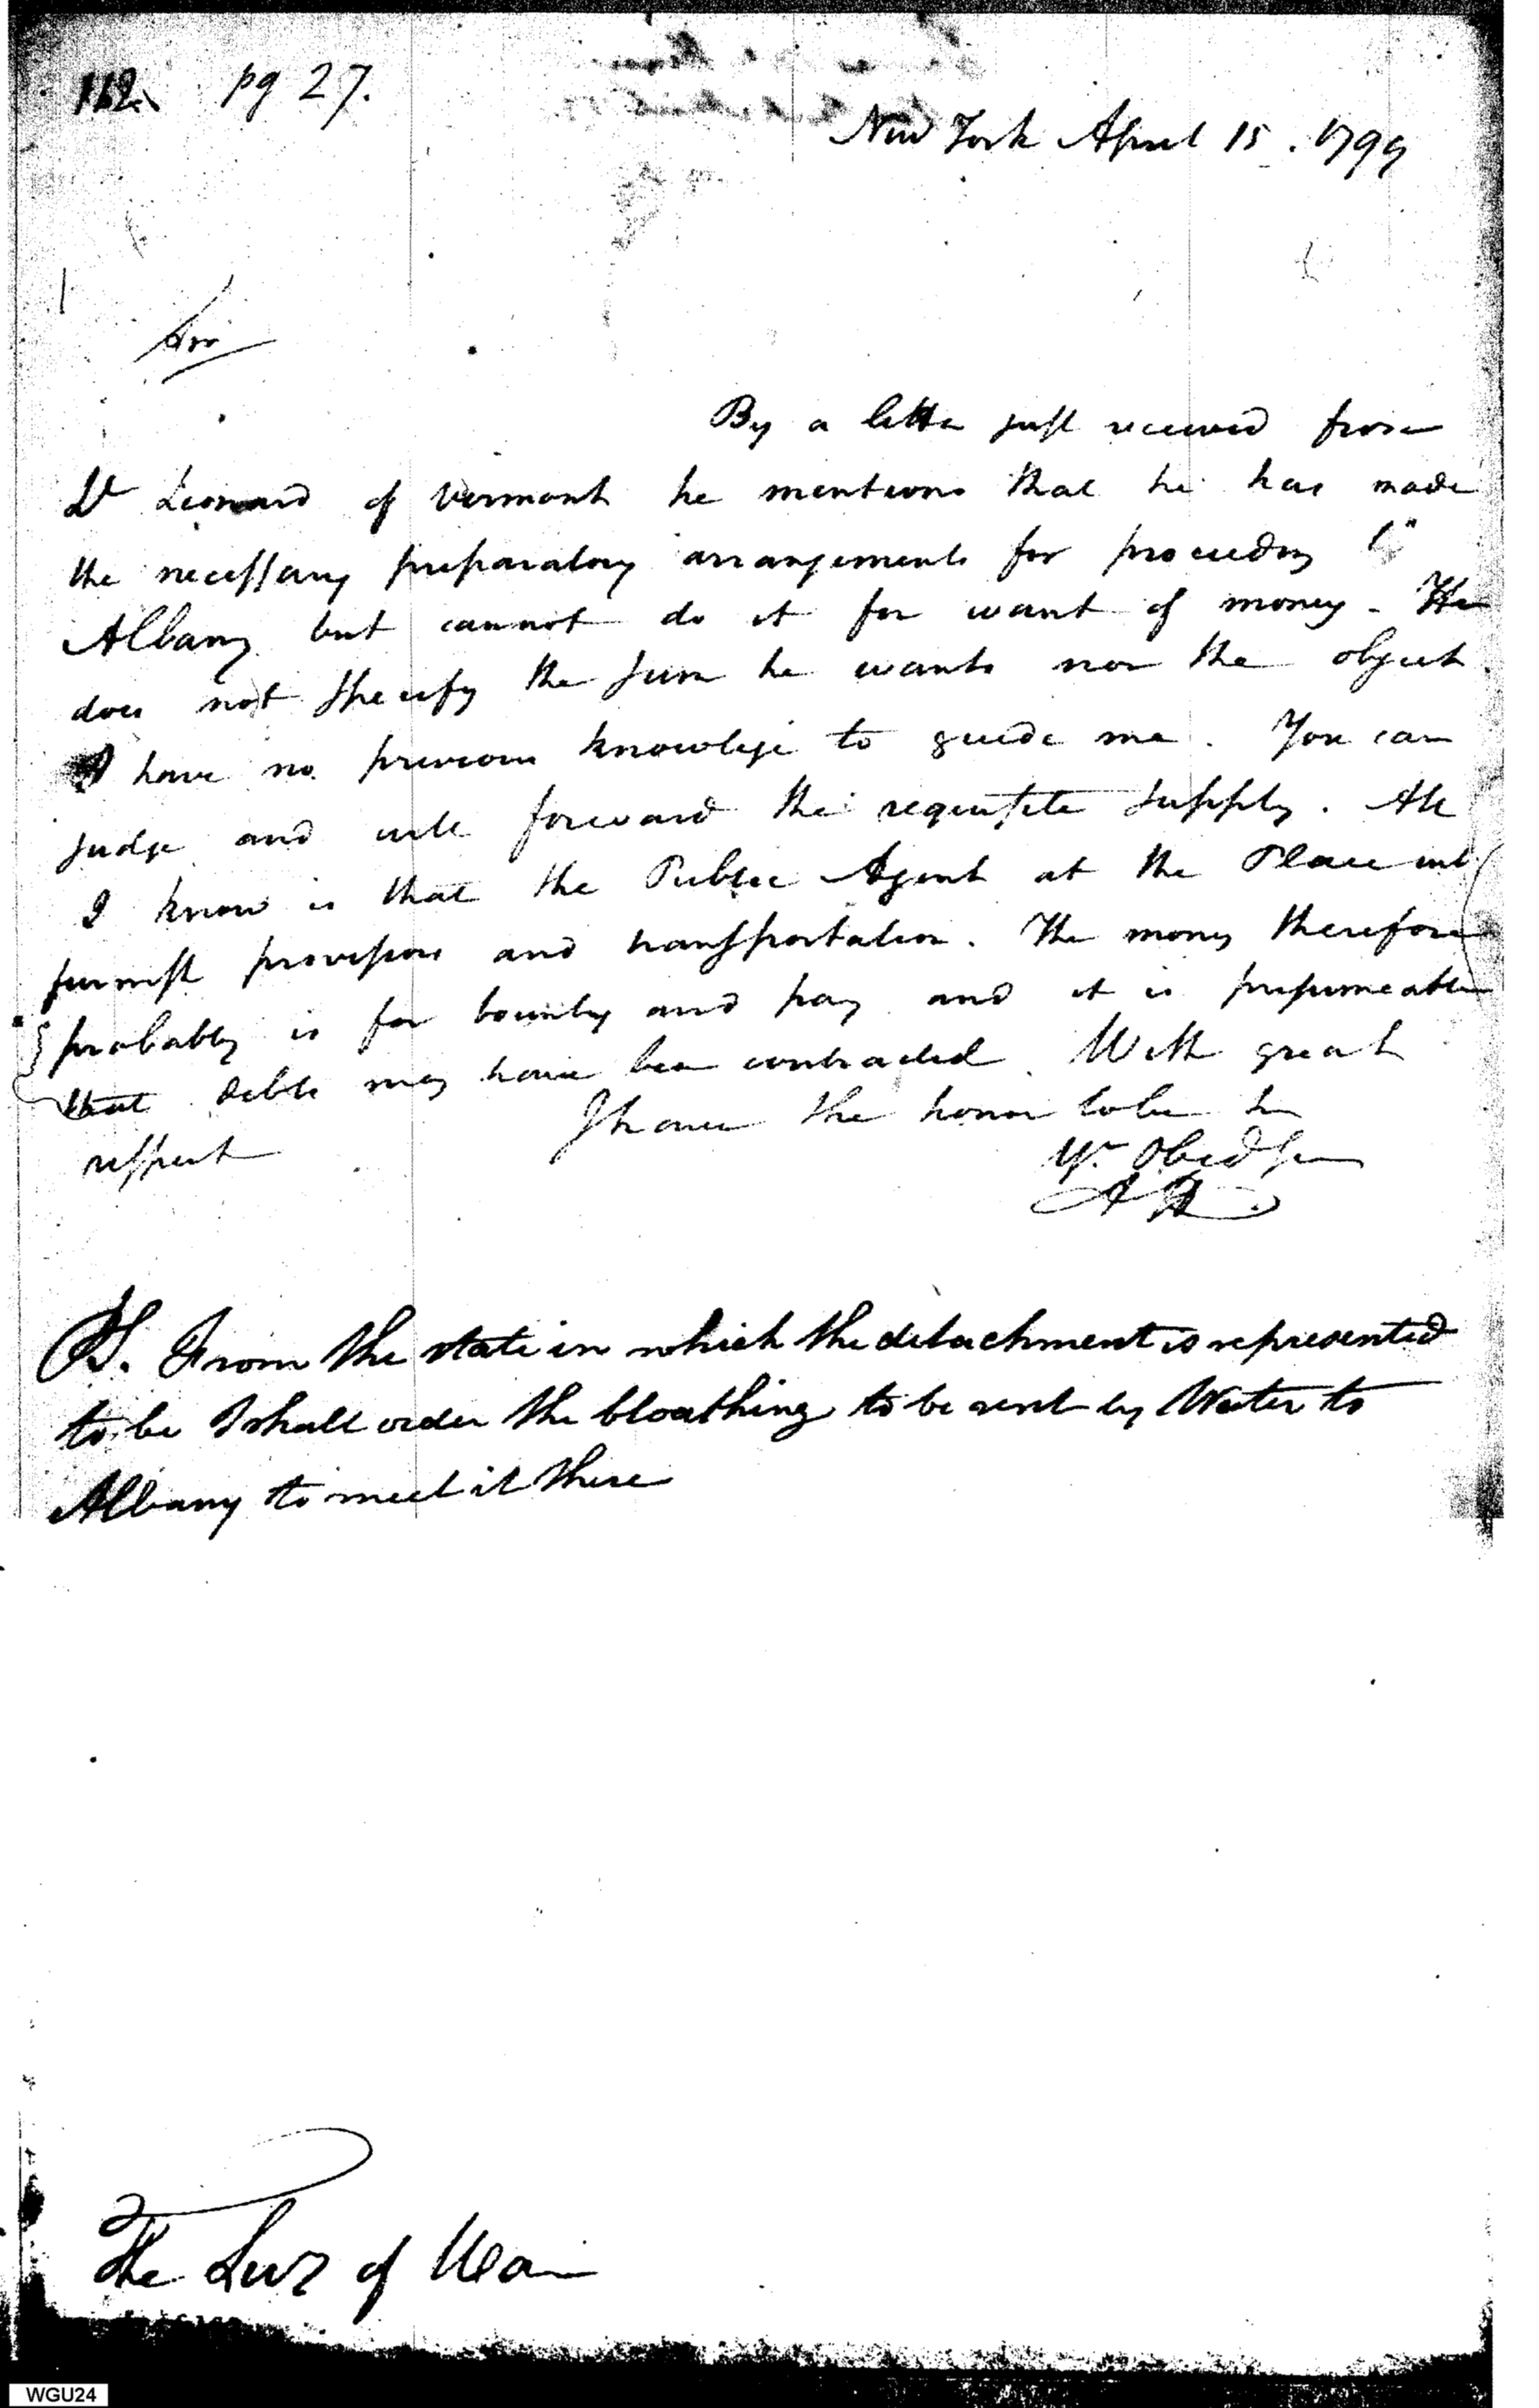 112. pg 27.
New York April 15. 1799
Sir
By a letter just received from
Lt Leonard of Vermont he mentions that he has made
the necessary preparatory arrangements for proceeding to
Albany but cannot do it for want of money - He
does not specify the sum he wants nor the object
I have no previous knowlege to guide me. You can
judge and will forward the requisite supply. All
I know is that the Public Agent at the Place will
furnish provisions and transportation. The money therefore
probably is for bounty and pay and it is presumeable
that debts may have been contracted. With great
respect I have the honor to be Sir
Yr. Obed Ser
A H
PS. From the state in which the detachment is represented
to be I shall order the cloathing to be sent by Water to
Albany to meet it there
The Secy of War
WGU24